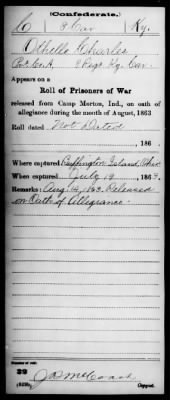 (Confederate.)
C 8 Cav Ky.
Othello Charles
Pvt Co. A. 8 Regt Ky. Cav.
Appears on a
Roll of Prisoners of War
released from Camp Morton, Ind., on oath of
allegiance during the month of August, 1863
Roll dated Not Dated
, 186 .
Where captured Buffington Island, Ohio
When captured July 19 , 1863.
Remarks: Aug 14, 1863. Released
on Oath of Allegiance.
Number of roll:
29
J. B. McCoach
Copyist.